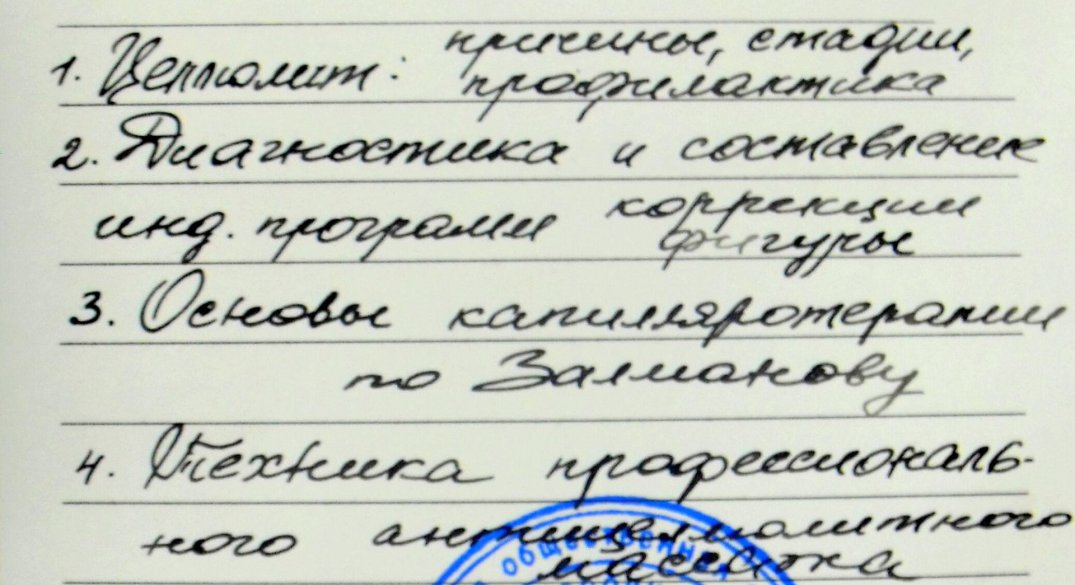 1. Целлюлит: причины, стадии,
профилактика
2. Диагностика и составление
инд. программ коррекции
фигуры
3. Основы капилляротерапии
по Залманову
4. Техника профессиональ-
ного антицеллюлитного
массажа
общественная